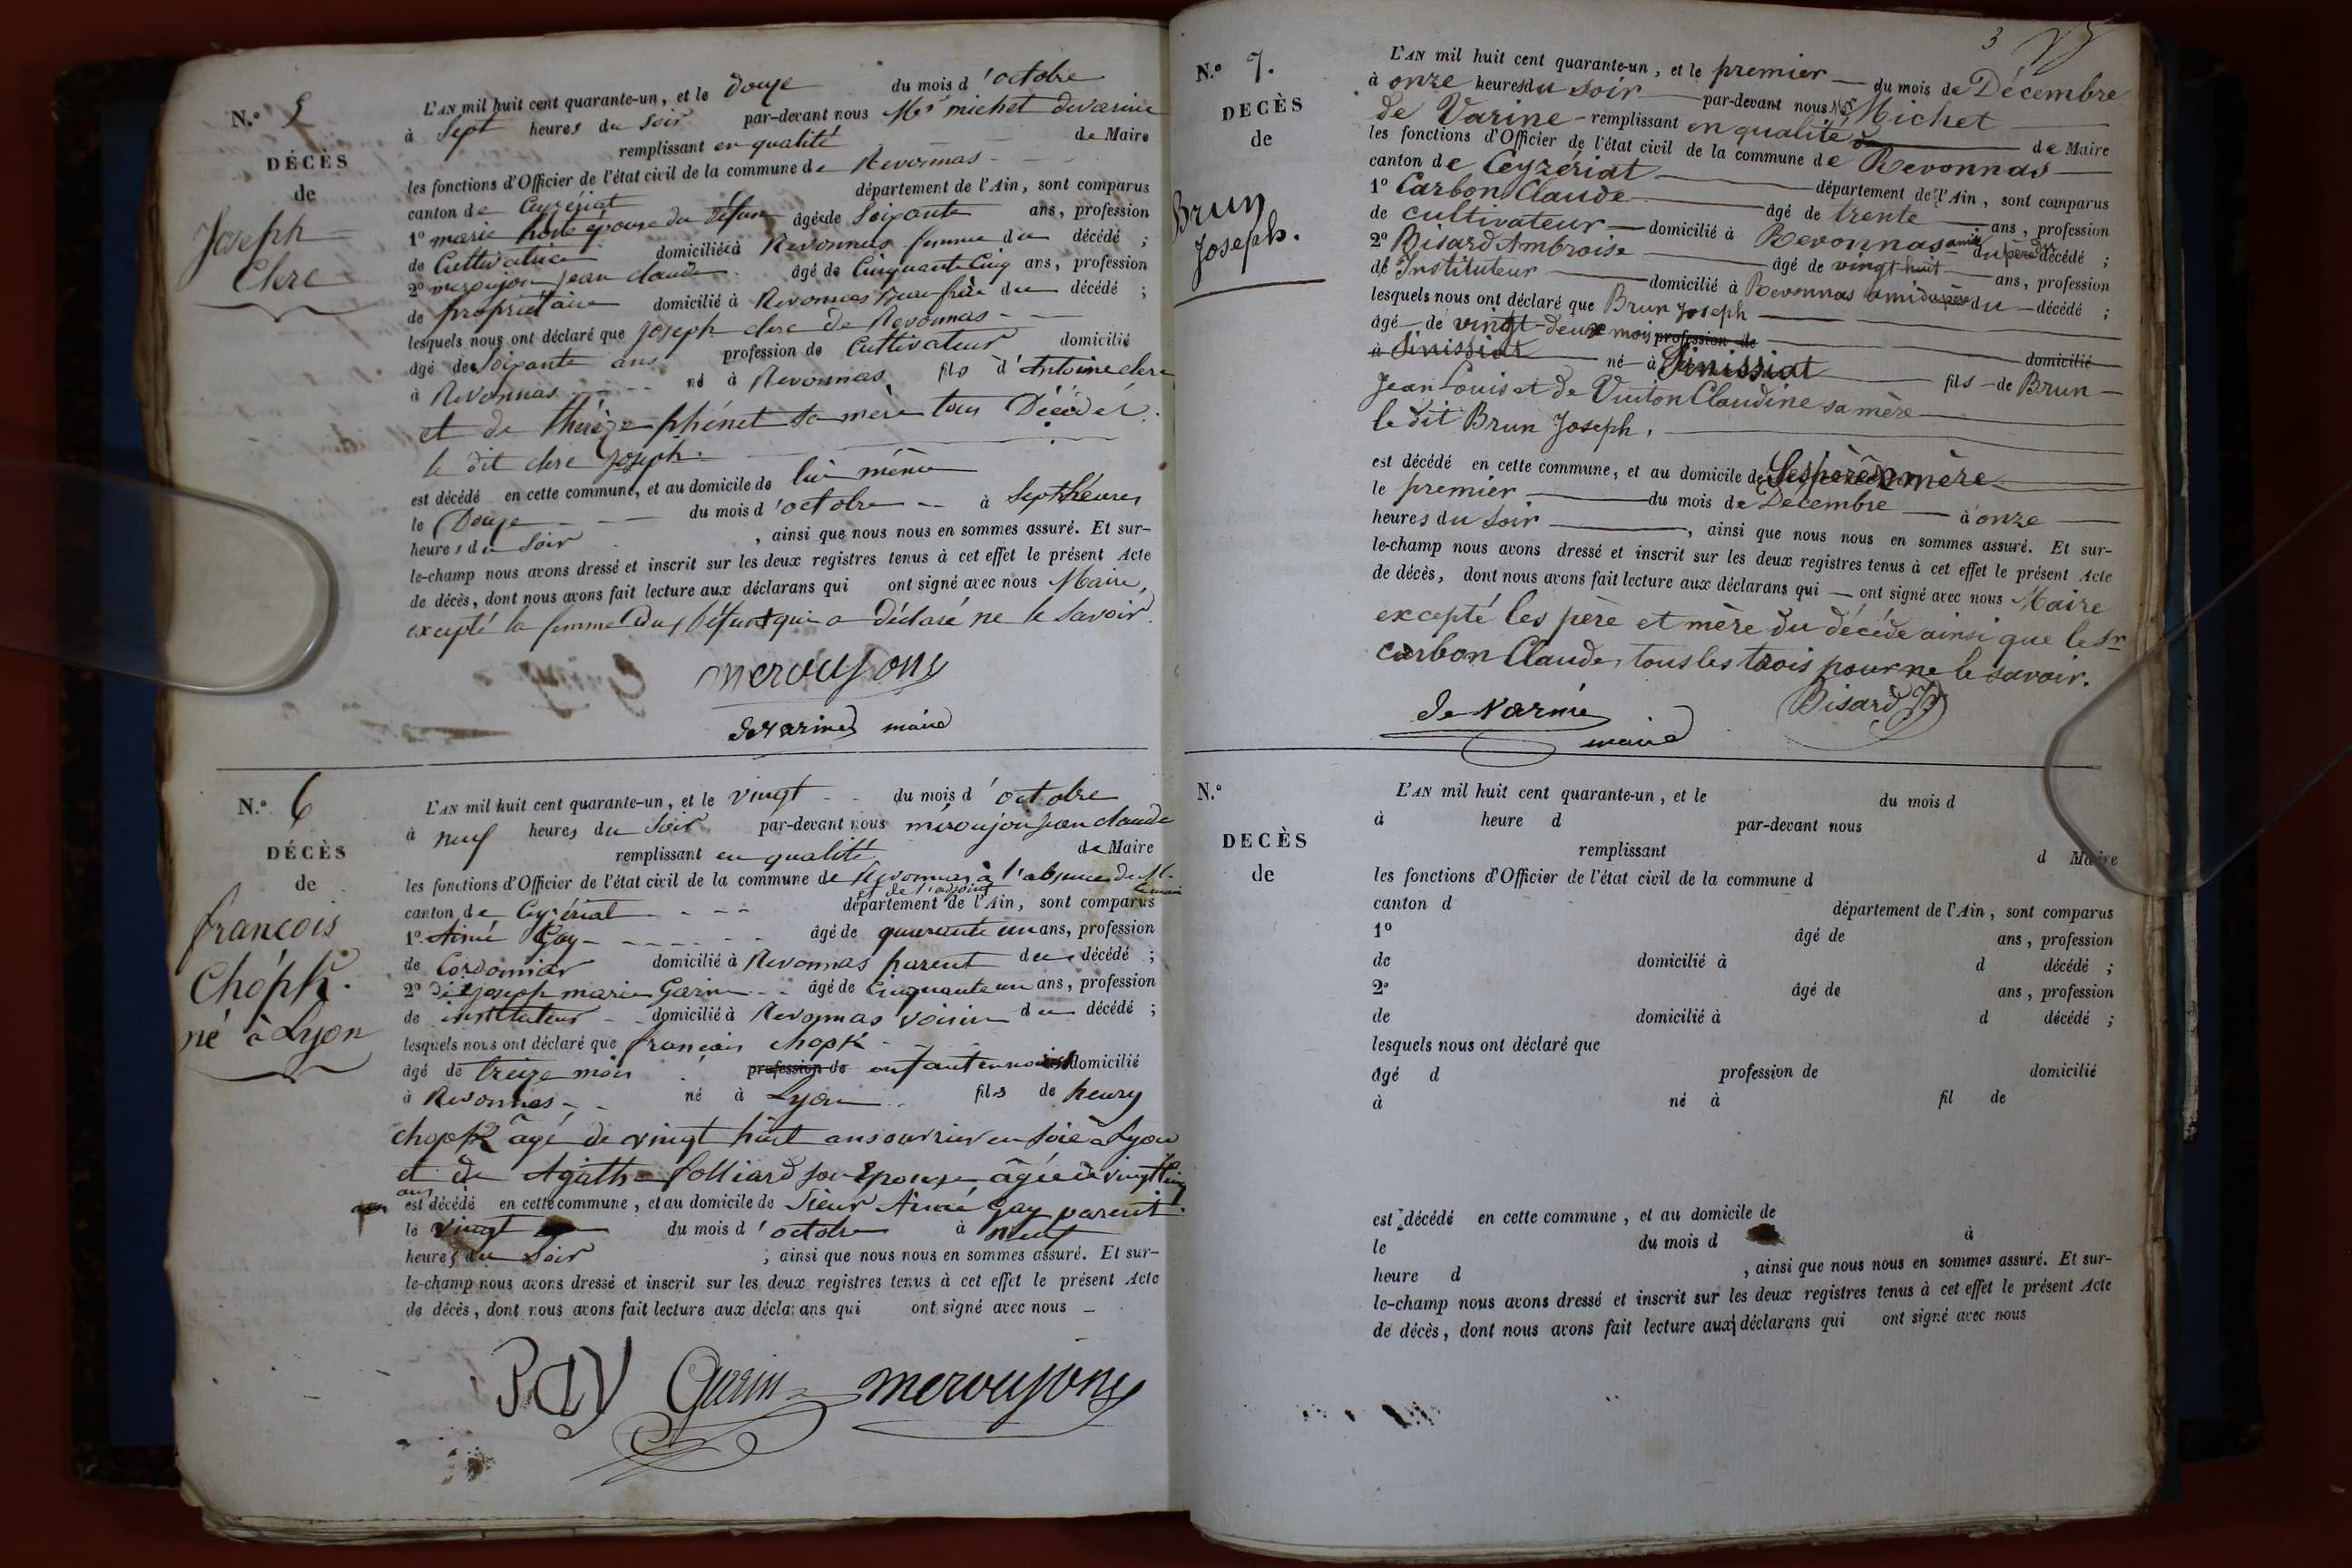 N.º 5
DÉCÈS
de
Joseph
Clerc
L'AN mil huit cent quarante-un, et le douze du mois d'octobre
à Sept heures du Soir par-devant nous Mr michet devarine
remplissant en qualité de Maire
les fonctions d'Officier de l'état civil de la commune de Revonnas
canton de Ceyzériat département de l'Ain, sont comparus
1º marie épouse du défun âgée de Soixante ans, profession
de Cultivatrice domiciliée à Revonnas femme du décédé ;
2º meroujon jean claude âgé de Cinquante Cinq ans, profession
de propriétaire domicilié à Revonnas frère du décédé ;
lesquels nous ont déclaré que joseph clerc de Revonnas
âgé de Soixante ans profession de Cultivateur domicilié
à Revonnas né à Revonnas fils d'Antoine clerc
et de thérèze phénet sa mère tous Décédés.
le dit clerc joseph.
est décédé en cette commune, et au domicile de lui même
le Douze du mois d'octobre à Sept heures
heures du Soir , ainsi que nous nous en sommes assuré. Et sur-
le-champ nous avons dressé et inscrit sur les deux registres tenus à cet effet le présent Acte
de décès, dont nous avons fait lecture aux déclarans qui ont signé avec nous Maire,
excepté la femme du défunt qui a Déclaré ne le Savoir.
meroujon
devarine maire
N.º 6
DÉCÈS
de
francois
Chopk.
né à Lyon
L'AN mil huit cent quarante-un, et le vingt du mois d'octobre
à neuf heures du Soir par-devant nous meroujon jean claude
remplissant en qualité de Maire
les fonctions d'Officier de l'état civil de la commune de Revonnas à l'absence de M.
et de l'adjoint
canton de Ceyzériat département de l'Ain, sont comparus
1º Aimé Gay âgé de quarante un ans, profession
de Cordonnier domicilié à Revonnas parent du décédé ;
2º joseph marie Garin âgé de Cinquante un ans, profession
de instituteur domicilié à Revonnas voisin du décédé ;
lesquels nous ont déclaré que françois chopk
âgé de treize mois profession de enfant domicilié
à Revonnas né à Lyon fils de henry
chopk âgé de vingt huit ans ouvrier en soie à Lyon
et de Agathe folliard son Epouse âgée de vingt cinq
ans
est décédé en cette commune, et au domicile de Sieur Aimé Gay parent.
le vingt du mois d'octobre à neuf
heures du Soir ; ainsi que nous nous en sommes assuré. Et sur-
le-champ nous avons dressé et inscrit sur les deux registres tenus à cet effet le présent Acte
de décès, dont nous avons fait lecture aux déclarans qui ont signé avec nous
Gay Garin meroujon
3
N.º 7.
DECÈS
de
Brun
Joseph.
L'AN mil huit cent quarante-un, et le premier du mois de Décembre
à onze heures du soir par-devant nous Mr Michet
de Varine remplissant en qualité de Maire
les fonctions d'Officier de l'état civil de la commune de Revonnas
canton de Ceyzériat département de l'Ain, sont comparus
1º Carbon Claude âgé de trente ans, profession
de cultivateur domicilié à Revonnas ami du père du décédé ;
2º Bisard Ambroise âgé de vingt-huit ans, profession
de Instituteur domicilié à Revonnas ami du père du décédé ;
lesquels nous ont déclaré que Brun Joseph
âgé de vingt-deux mois profession de domicilié
à Simissiat né à Simissiat fils de Brun
Jean Louis et de Vuiton Claudine sa mère
le dit Brun Joseph.
est décédé en cette commune, et au domicile de Ses père & mère
le premier du mois de Décembre à onze
heures du Soir , ainsi que nous nous en sommes assuré. Et sur-
le-champ nous avons dressé et inscrit sur les deux registres tenus à cet effet le présent Acte
de décès, dont nous avons fait lecture aux déclarans qui ont signé avec nous Maire
excepté les père et mère du décédé ainsi que le Sr
Carbon Claude, tous les trois pour ne le savoir.
de Varine Bisard
maire
N.º
DECÈS
de
L'AN mil huit cent quarante-un, et le du mois d
à heure d par-devant nous
remplissant d Maire
les fonctions d'Officier de l'état civil de la commune d
canton d département de l'Ain, sont comparus
1º âgé de ans, profession
de domicilié à d décédé ;
2º âgé de ans, profession
de domicilié à d décédé ;
lesquels nous ont déclaré que
âgé d profession de domicilié
à né à fil de
est décédé en cette commune, et au domicile de
le du mois d à
heure d , ainsi que nous nous en sommes assuré. Et sur-
le-champ nous avons dressé et inscrit sur les deux registres tenus à cet effet le présent Acte
de décès, dont nous avons fait lecture aux déclarans qui ont signé avec nous